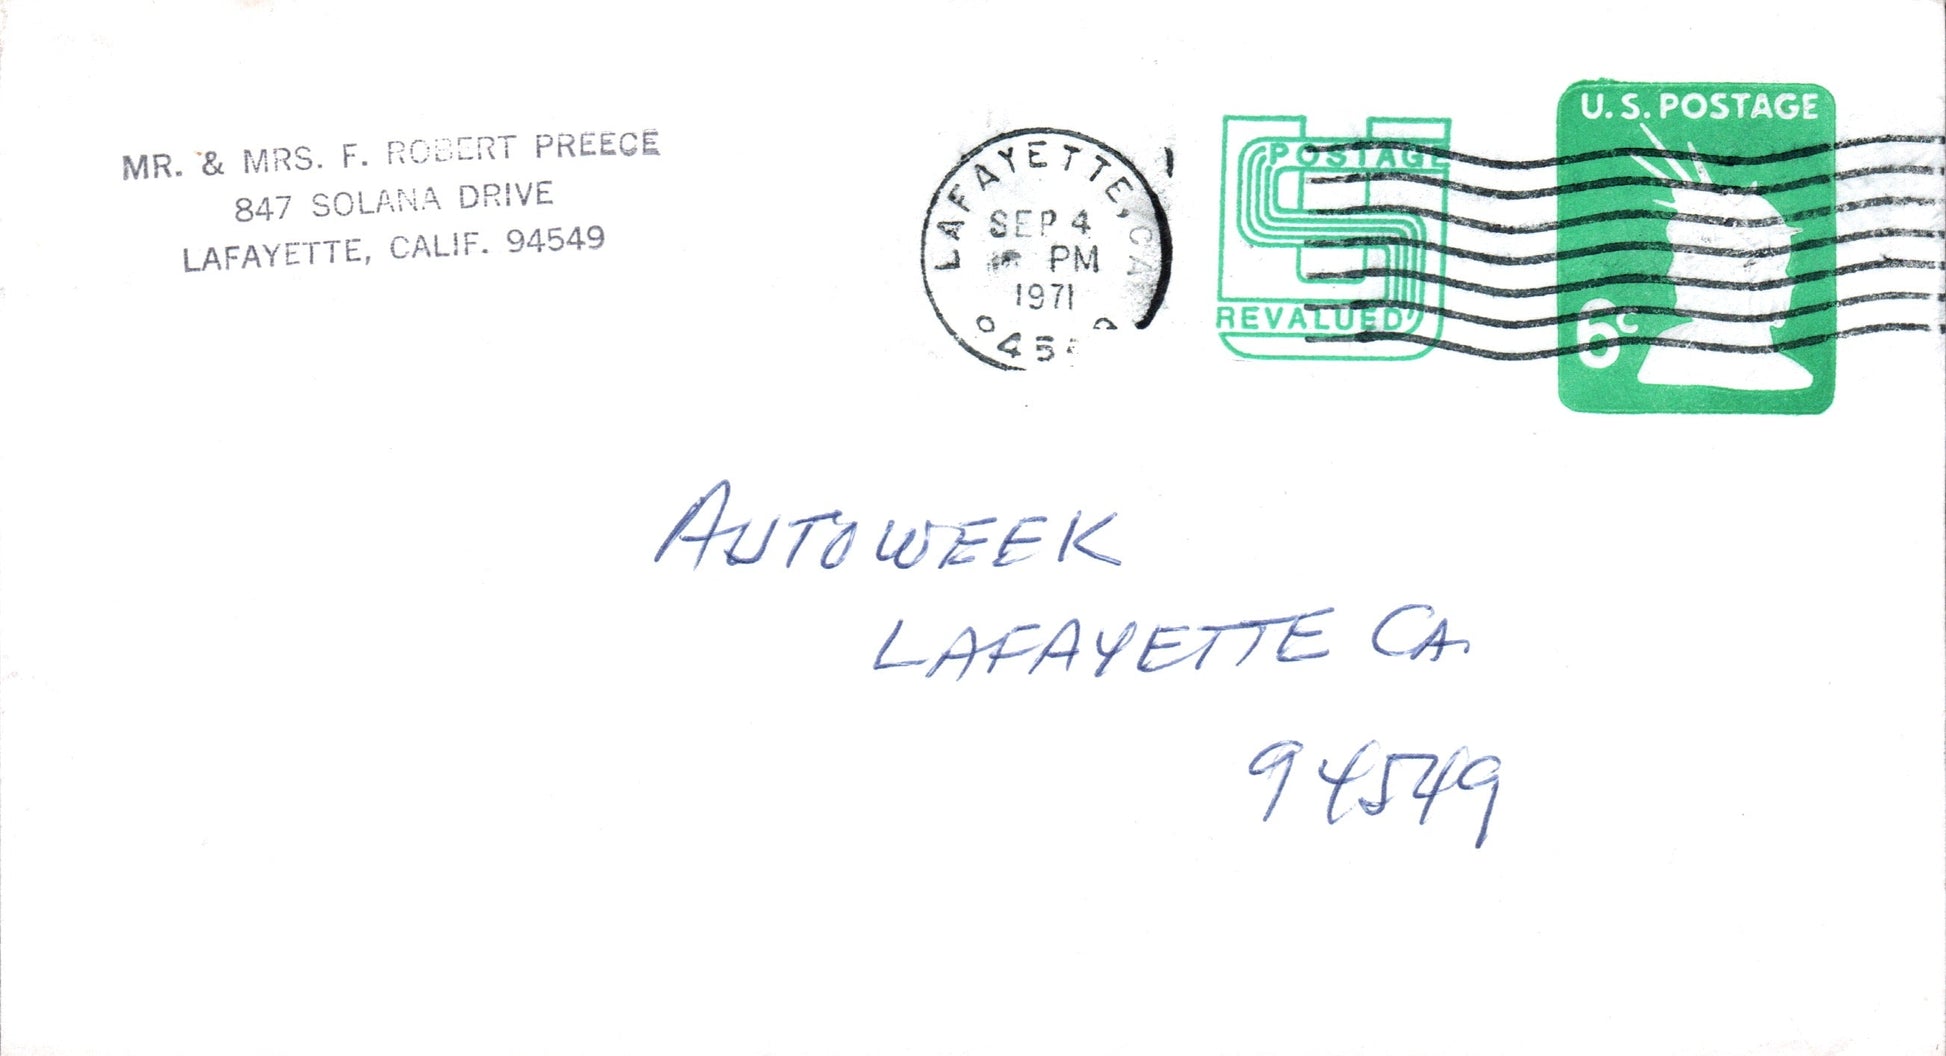 MR. & MRS. F. ROBERT PREECE
847 SOLANA DRIVE
LAFAYETTE, CALIF. 94549
LAFAYETTE, CA
SEP 4
PM
1971
POSTAGE
REVALUED
U.S. POSTAGE
6c
AUTOWEEK
LAFAYETTE CA.
94549